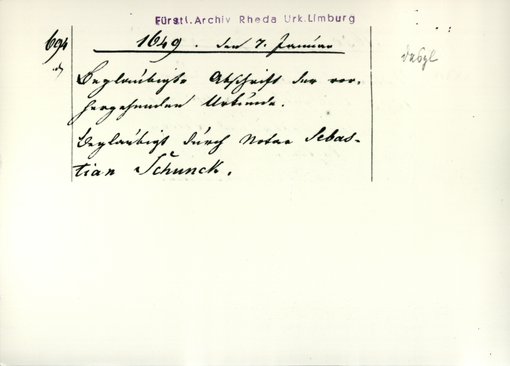 Fürstl. Archiv Rheda Urk. Limburg
694
1649. den 7. Januar
Beglaubigte Abschrift der vor-
hergehenden Urkunde.
Beglaubigt durch Notar Sebas-
tian Schunck.